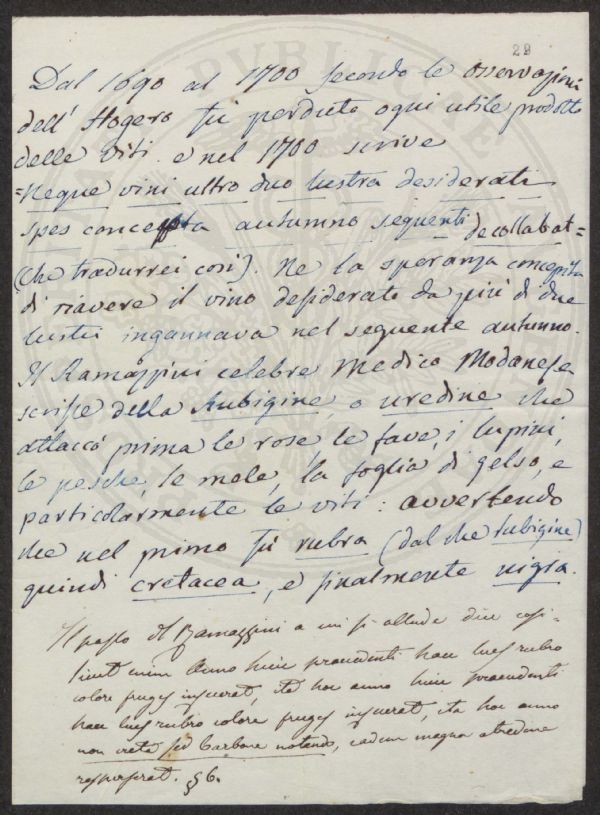 29
Dal 1690 al 1700 secondo le osservazioni
dell' Hogero fu perduto ogni utile prodotto
delle viti. e nel 1700 scrive
=Neque vini ultro duo lustra desiderati
spes concepta autumno sequenti decollabat=
(che tradurrei così). Ne la speranza concepita
di riavere il vino desiderato da più di due
lustri ingannava nel seguente autunno.
Il Ramazzini celebre Medico Modanese
scrisse della Rubigine, o uredine che
attaccò prima le rose, le fave, i lupini,
le pesche, le mele, la foglia di gelso, e
particolarmente le viti: avvertendo
che nel primo fu rubra (dal che rubigine)
quindi cretacea, e finalmente nigra.
Il passo del Ramazzini a cui si allude dice così-
enim Anno huic praecedenti haec lues rubro
colore fruges infecerat, ita hoc anno huic praecedenti
haec lues rubro colore fruges infecerat, ita hoc anno
non creta sed carbone notando, eadem magna atredine
resperserat. § 6.